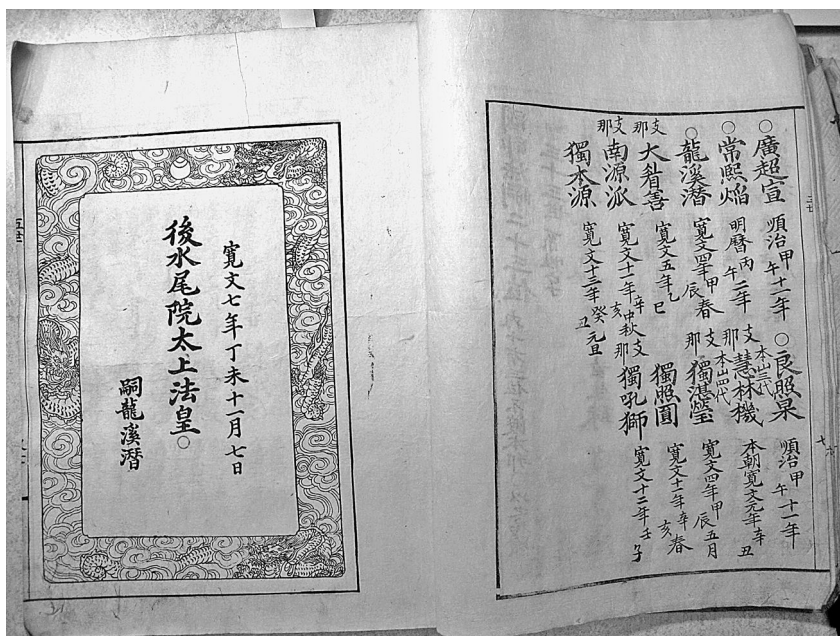 ○廣超宣 順治甲午十一年 ○良照杲 順治甲午十一年
○常熈焔 明曆丙申二年 支那 本山三代 慧林機 本朝寛文元年辛丑
○龍溪潛 寛文四年甲辰春 支那 本山四代 獨湛瑩 寛文四年甲辰五月
支那 大眉善 寛文五年乙巳 獨照圓 寛文十一年辛亥春
支那 南源派 寛文十一年辛亥中秋 支那 獨吼獅 寛文十二年壬子
獨本源 寛文十三年癸丑元旦
寛文七年丁未十一月七日
後水尾院太上法皇○
嗣龍溪潛